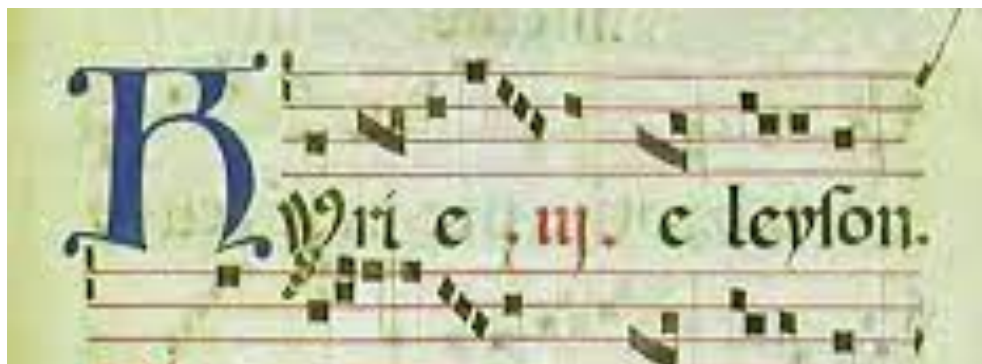 Kyrie .iij. eleyson.